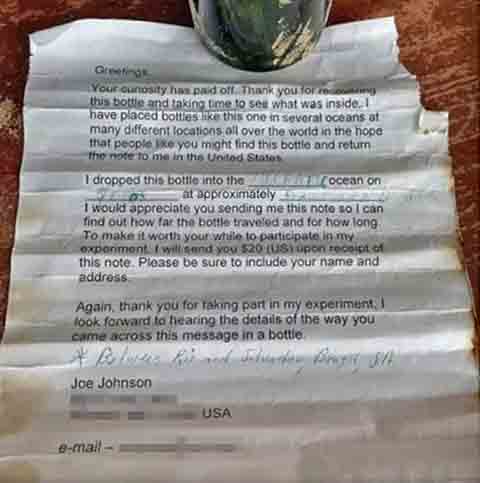 Greetings,
Your curiosity has paid off. Thank you for recovering
this bottle and taking time to see what was inside. I
have placed bottles like this one in several oceans at
many different locations all over the world in the hope
that people like you might find this bottle and return
the note to me in the United States.
I dropped this bottle into the ocean on
at approximately
I would appreciate you sending me this note so I can
find out how far the bottle traveled and for how long.
To make it worth your while to participate in my
experiment, I will send you $20 (US) upon receipt of
this note. Please be sure to include your name and
address.
Again, thank you for taking part in my experiment, I
look forward to hearing the details of the way you
came across this message in a bottle.
* Between Rio and Salvador Brazil, SA
Joe Johnson
USA
e-mail –